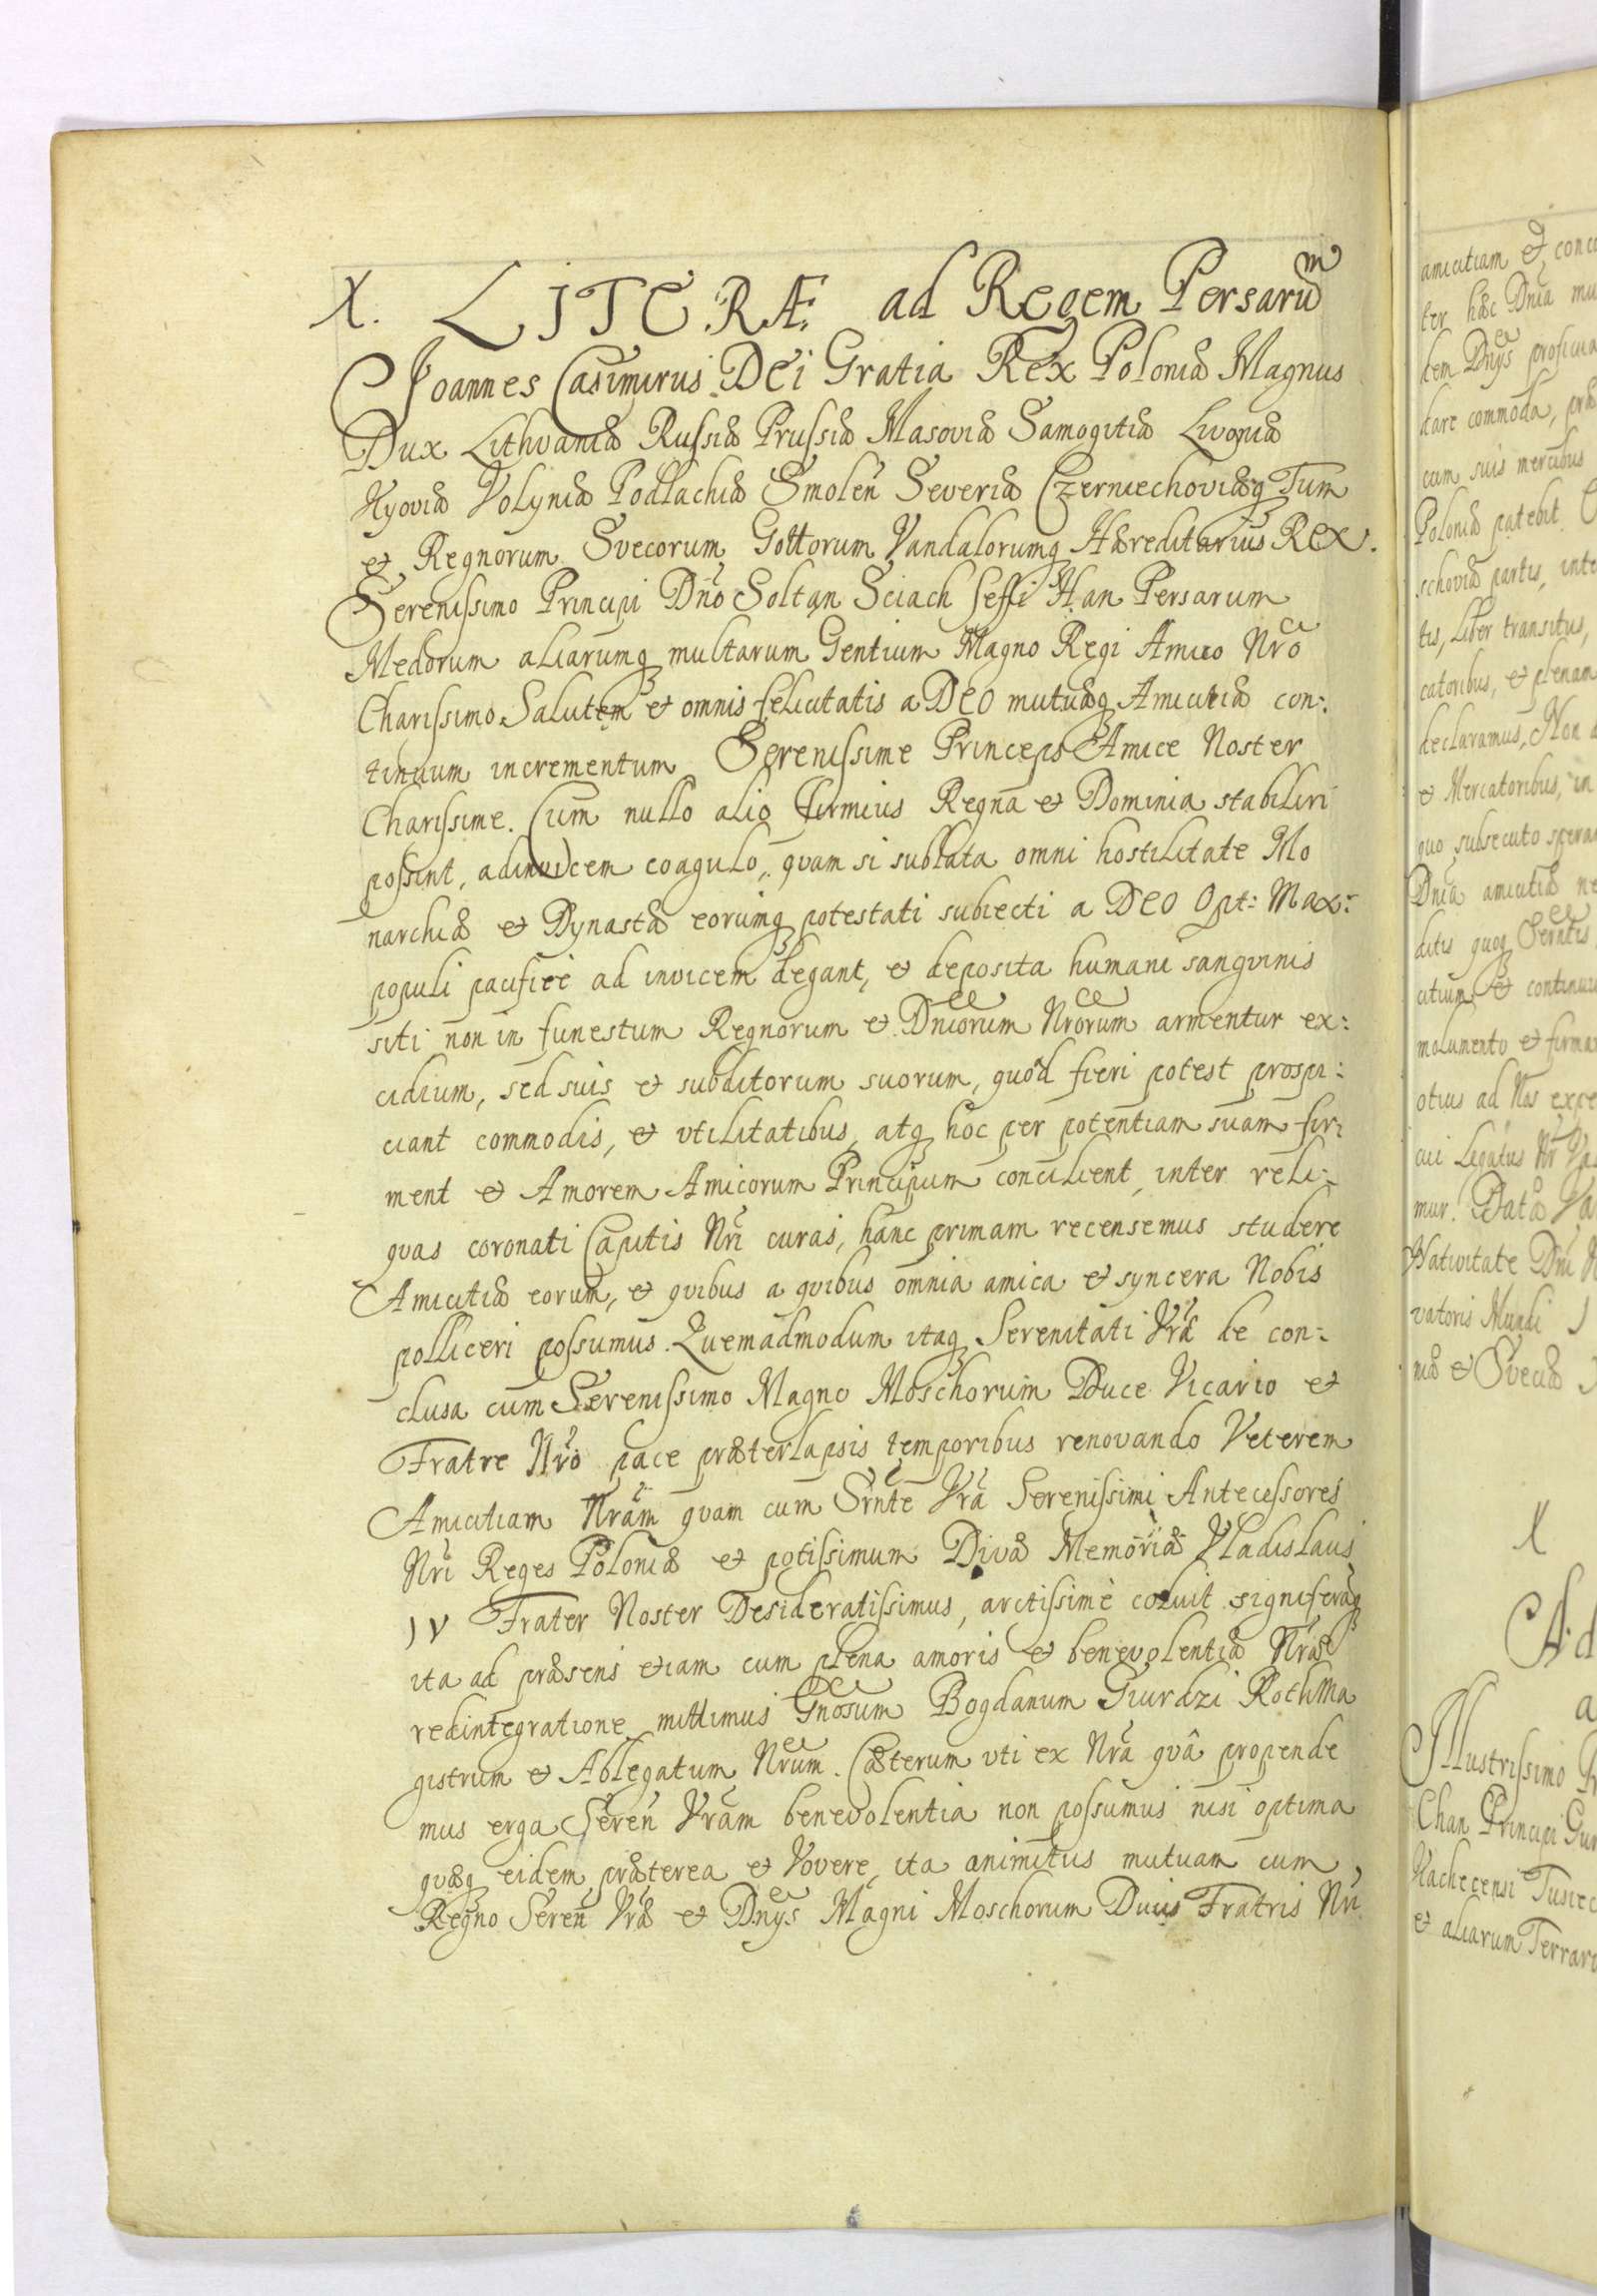 X. LITERÆ ad Regem Persarum
Joannes Casimirus DEi Gratia REx Poloniæ Magnus
Dux Lithvaniæ Russiæ Prussiæ Masoviæ Samogitiæ Livoniæ
Kyoviæ Volyniæ Podlachiæ Smolen̄ Severiæ Czerniechoviæq Tum
et Regnorum Svecorum Gottorum Vandalorumq Hæreditarius REX.
Serenissimo Principi Dn̄o Soltan Sciach Seffi Han Persarum
Medorum aliarumq multarum Gentium Magno Regi Amico Nrō
Charissimo Salutem et omnis felicitatis a DEO mutuæq Amicitiæ con:
tinuum incrementum Serenissime Princeps Amice Noster
Charissime. Cum nullo alio firmius Regna et Dominia stabiliri
possint, adinvicem coagulo, quam si sublata omni hostilitate Mo
narchiæ et Dynastæ eorumq potestati subiecti a DEO Opt: Max:
populi pacificè ad invicem degant, et deposita humani sangvinis
siti non in funestum Regnorum et Dn̄iorum Nrōrum armentur ex:
cidium, sed suis et subditorum suorum, quod fieri potest prospi:
ciant commodis, et vtilitatibus, atq hoc per potentiam suam fir:
ment et Amorem Amicorum Principum concilient, inter reli:
quas coronati Capitis Nrī curas, hanc primam recensemus studere
Amicitiæ eorum, et quibus a quibus omnia amica et syncera Nobis
polliceri possumus. Quemadmodum itaq Serenitati Vræ de con:
clusa cum Serenissimo Magno Moschorum Duce Vicario et
Fratre Nrō pace præterlapsis temporibus renovando Veterem
Amicitiam Nrām quam cum Srn̄te Vrā Serenissimi Antecessores
Nrī Reges Poloniæ et potissimum Divæ Memoriæ Vladislaus
IV Frater Noster Desideratissimus, arctissimè coluit significavitq
ita ad præsens etiam cum plena amoris et benevolentiæ Nræ
redintegratione mittimus Gnōsum Bogdanum Giurdzi RothMa
gistrum et Ablegatum Nrūm. Cæterum vti ex Nrā quâ propende
mus erga Seren̄ Vrām benevolentia non possumus nisi optima
quæq eidem præterea et Vovere, ita animitus mutuam cum
Regno Seren̄ Vræ et Dn̄ys Magni Moschorum Ducis Fratris Nrī
amicitiam et
ter hæc Dn̄ia
tem Dn̄ys
tare commoda,
cum suis mercibus
Poloniæ patebit
schoviæ partis,
tis, Liber transitus,
catoribus, et plenam
declaramus, Non
et Mercatoribus, in
quo subsecuto
Dn̄ia amicitiæ
ditis quoq
et
molumento et
otius ad Nos
cui Legatus Nr̄
mur. Datæ
Nativitate Dn̄i
vatoris Mundi
niæ et Sveciæ
X
Ad
a
Illustrissimo
Chan Principi
et aliarum